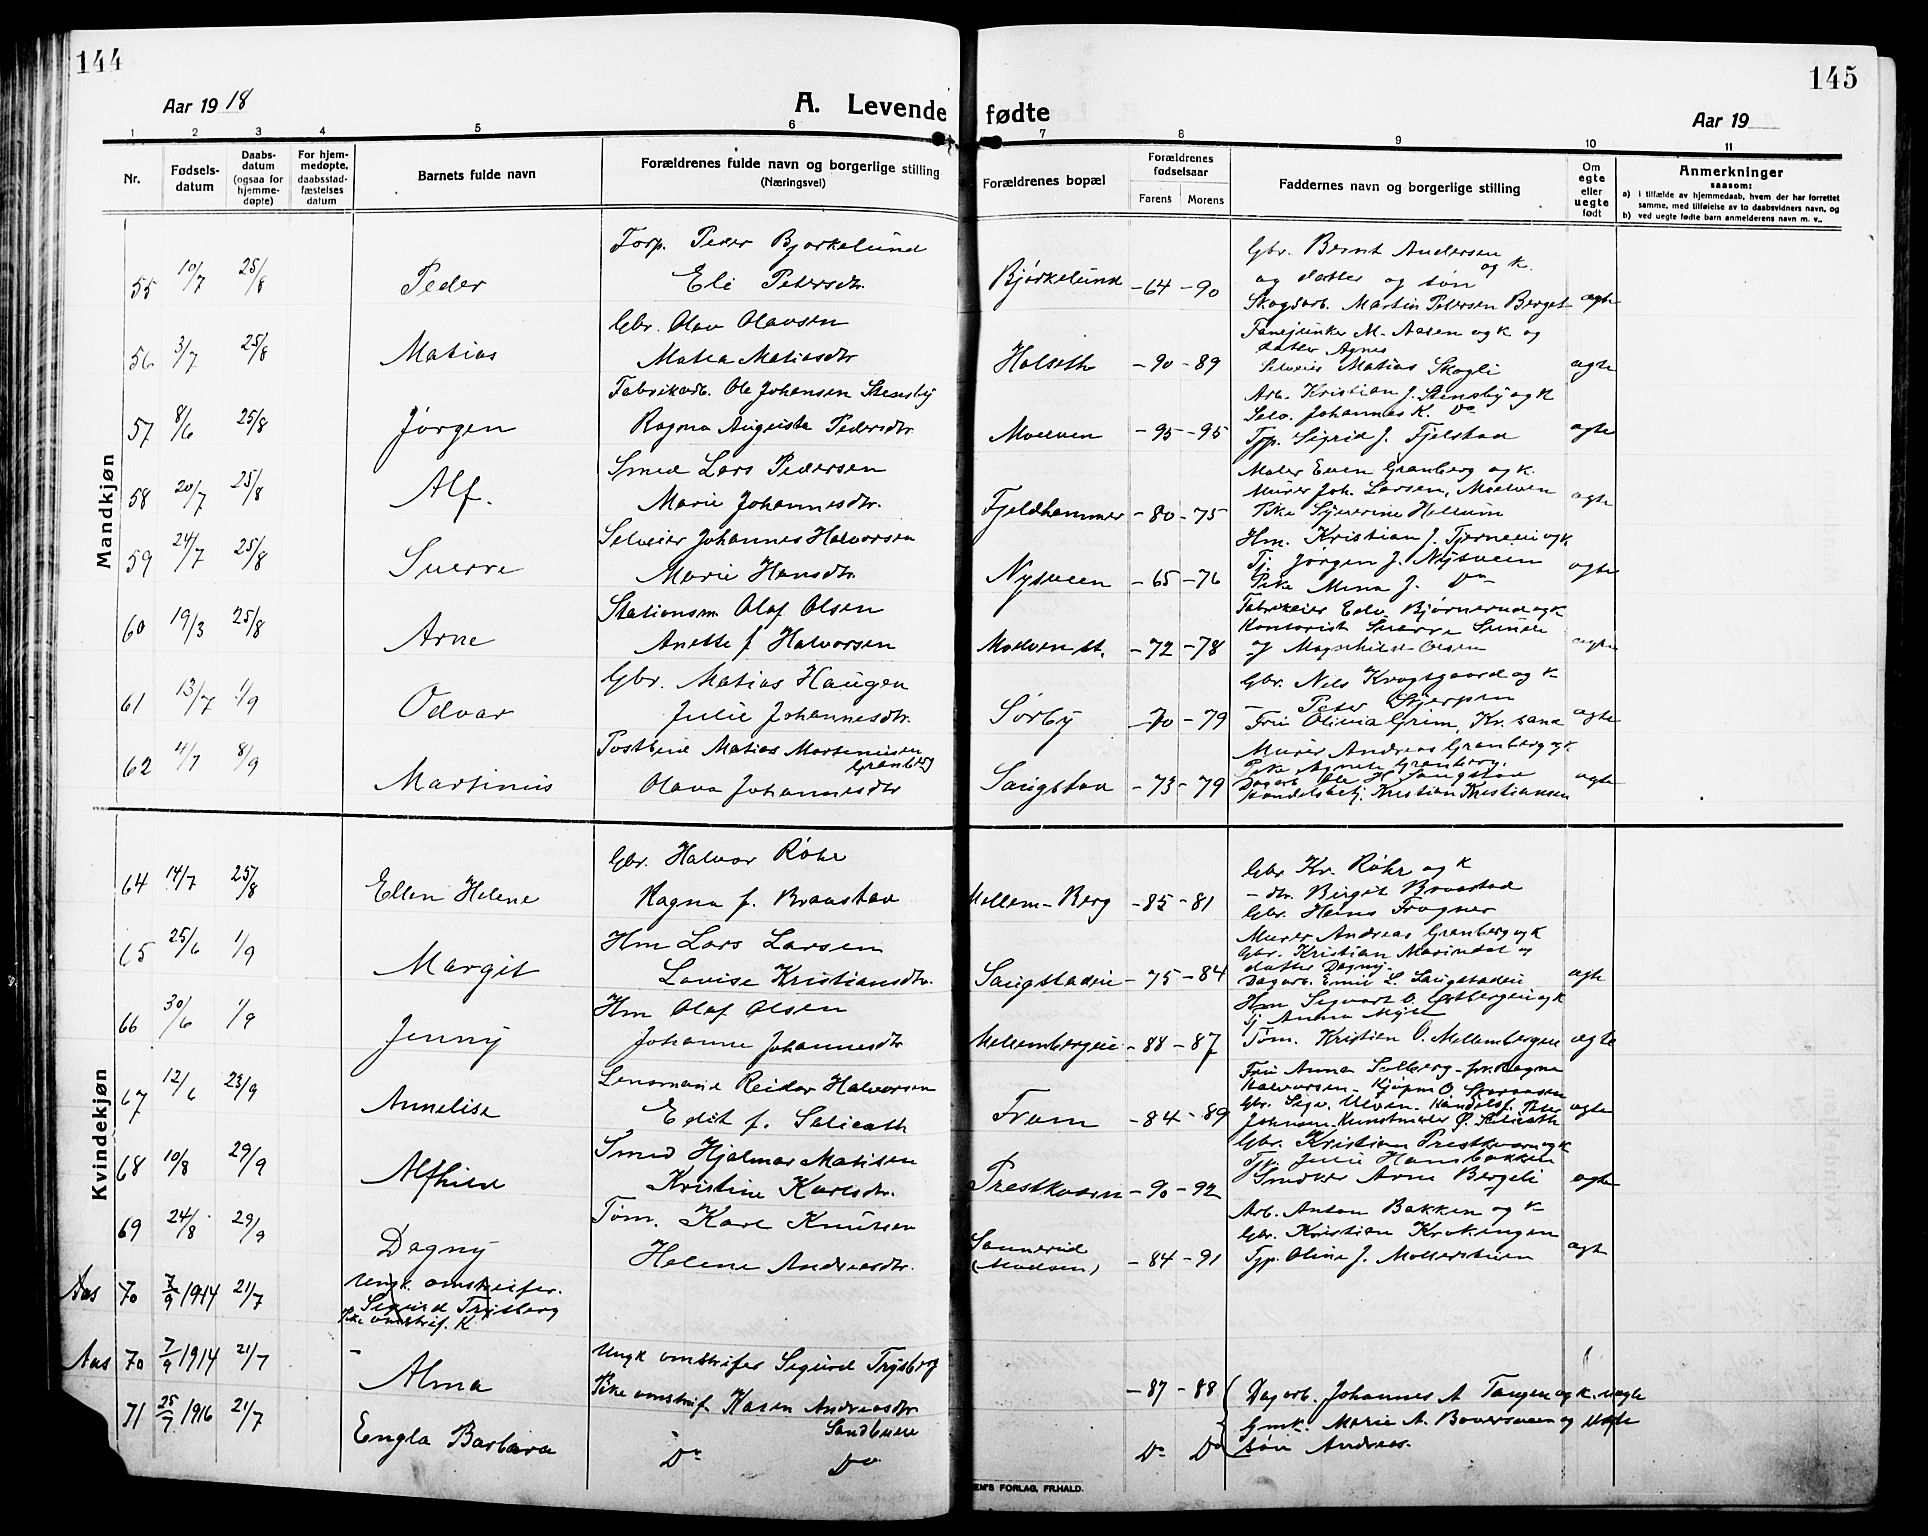 144
145
Aar 1918
A. Levende fødte
Aar 19
1 2 3 4 5 6 7 8 9 10 11
Nr.
Fødsels-
datum
Daabs-
datum
(ogsaa for
hjemme-
døpte)
For hjem-
medøpte,
daabsstad-
fæstelses
datum
Barnets fulde navn
Forældrenes fulde navn og borgerlige stilling
(Næringsvei)
Forældrenes bopæl
Forældrenes
fødselsaar
Farens Morens
Faddernes navn og borgerlige stilling
Om
egte
eller
uegte
født
Anmerkninger
saasom:
a) i tilfælde av hjemmedaab, hvem der har forrettet
samme, med tilføielse av to daabsvidners navn, og
b) ved uegte fødte barn anmelderens navn m. v.
Mandkjøn
55 10/7 25/8 Peder
Forp. Peder Bjørkelund
Eli Petersdtr.
Bjørkelund -64 -90
Gbr. Bernt Andersen
og K.
og datter og søn
Skogsarb. Martin Petersen Berget
egte
56 3/7 25/8 Matias
Gbr. Olav Olavsen
Matea Matiasdtr
Holseth -90 -89
M. Aasen og K og
datter Agnes
Selveier Matias Skogli
egte
57 8/6 25/8 Jørgen
Fabrikarb. Ole Johansen Stensby
Ragna Augusta Pedersdtr
Moelven -95 -95
Arb. Kristian J. Stensby og K
Selv. Johannes K. Do
Tjp. Sigrid J. Fjelstad
egte
58 20/7 25/8 Alf.
Smed Lars Pedersen
Marie Johannesdtr.
Fjeldhammer -80 -75
Maler Even Granberg og K.
Murer Joh. Larsen, Moelven
Pike Syverine Hellum
egte
59 24/7 25/8 Sverre
Selveier Johannes Halvorsen
Marie Hansdtr.
Nysveen -65 -76
Hm. Kristian J. Tjerneei og K
Tj. Jørgen J. Nysveen
Pike Mina J. Do
egte
60 19/3 25/8 Arne
Stationsm. Olaf Olsen
Anette f. Halvorsen
Moelven st. -72 -78
Fabrikeier Edv. Bjørnerud og K
Kontorist Sverre
Olsen
egte
61 13/7 1/9 Odvar
Gbr. Matias Haugen
Julie Johannesdtr.
Sørby -70 -79
Gbr. Nels Krogsgaard og K
- Peter Skjerpen
Fru Olivia Grim, Kr.sand
egte
62 4/7 8/9 Martinus
Postbud Matias Martinusen
Granberg
Olava Johannesdtr
Saugstad -73 -79
Murer Andreas Granberg og K
Pike Agnete Granberg.
Dagarb. Ole H Saugstad
Handelsbetj. Kristian Kristiansen
egte
Kvindekjøn
64 14/7 25/8 Ellen Helene
Gbr. Halvor Røhr
Ragna f. Braastad
Mellem-Berg -85 -81
Gbr Kr. Røhr og K
- dtr. Birgit Braastad
Gbr. Hans Frogner
65 25/6 1/9 Margit
Hm Lars Larsen
Lovise Kristiansdtr.
Saugstadeie -75 -84
Murer Andreas Granberg og K
Gbr. Kristian Marindal og
datter Dagny.
Dagarb. Emil L. Saugstadeie
egte
66 30/6 1/9 Jenny
Hm Olaf Olsen
Johanne Johannesdtr
Mellembergeie -88 -87
Hm Sigvart O. Østbergeie og K
Tj Anna Myhr
Tøm. Kristian O. Mellembergeie
egte
67 12/6 23/9 Annelise
Reidar Halvorsen
Edit f. Salicath
Fram -84 -89
Fru Anna Solberg - frk Ragna
Halvorsen - Kjøpm O
Gbr. Sigv. Ulven. Handelsf. Peter
Johnsen. Kunstmaler Ø. Salicath
egte
68 10/8 29/9 Alfhild
Smed Hjalmar Matisen
Kristine Karlsdtr.
Prestkvern -90 -92
Gbr. Kristian Prestkvern og K
Tjp. Julie Hansbakken
Snedker Arne Bergeli
egte
69 24/8 29/9 Dagny
Tøm. Karl Knutsen
Helene Andreasdtr.
Sannerud
(Moelven) -84 -91
Arb. Anton Bakken og K
Gbr. Kristian Krokengen
Tjp. Oline J. Møllerstuen
egte
Aas 70 7/9 1914 21/7
Ungk. omstreifer.
Sigurd Trysberg
Pike omstreif. K
Aas 70 7/9 1914 21/7 - Alma
Ungk omstreifer Sigurd Trysberg
Pike omstreif. Karen Andreasdtr
Sandbueie
-87 -88
Dagarb. Johannes A Tangen og K. uegte
71 25/7 1916 21/7 Engla Barbara
Do Do
Do Do
Gmk. Marie A. Boversveen og
søn Andreas.
uegte
EM'S FORLAG, FR.HALD.